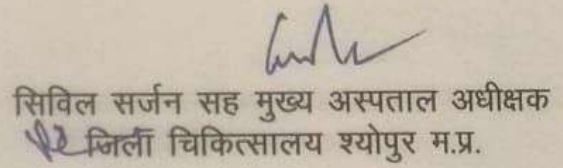 सिविल सर्जन सह मुख्य अस्पताल अधीक्षक
जिला चिकित्सालय श्योपुर म.प्र.